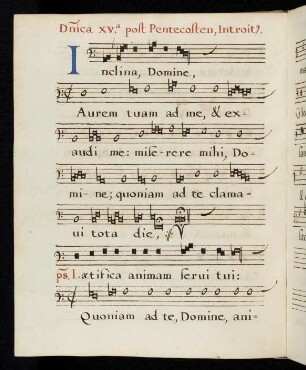 Dnica XV.a post Pentecosten, Introit9.
Inclina, Domine,
Aurem tuam ad me, & ex-
audi me: mise-rere mihi, Do-
mi-ne; quoniam ad te clama-
ui tota die,
ps. Lætifica animam serui tui:
Quoniam ad te, Domine, ani-